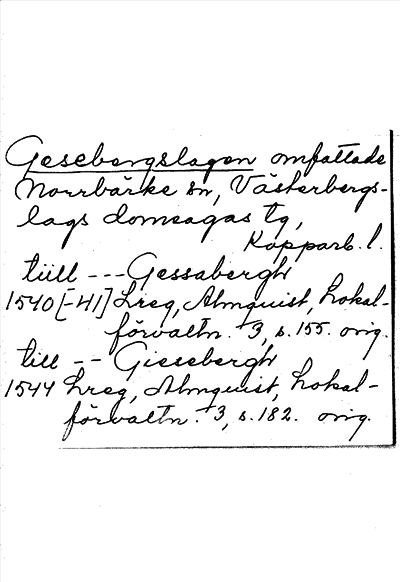 Gesebergslagen omfattade
Norrbärke sn, Västerbergs-
lags domsagas tg,
Kopparb. l.
tiill --- Gessabergh
1540[-41] Lreg, Almquist, Lokal-
förvaltn. 3, s. 155. orig.
till -- Giesebergh
1544 Lreg, Almquist, Lokal-
förvaltn. 3, s. 182. orig.